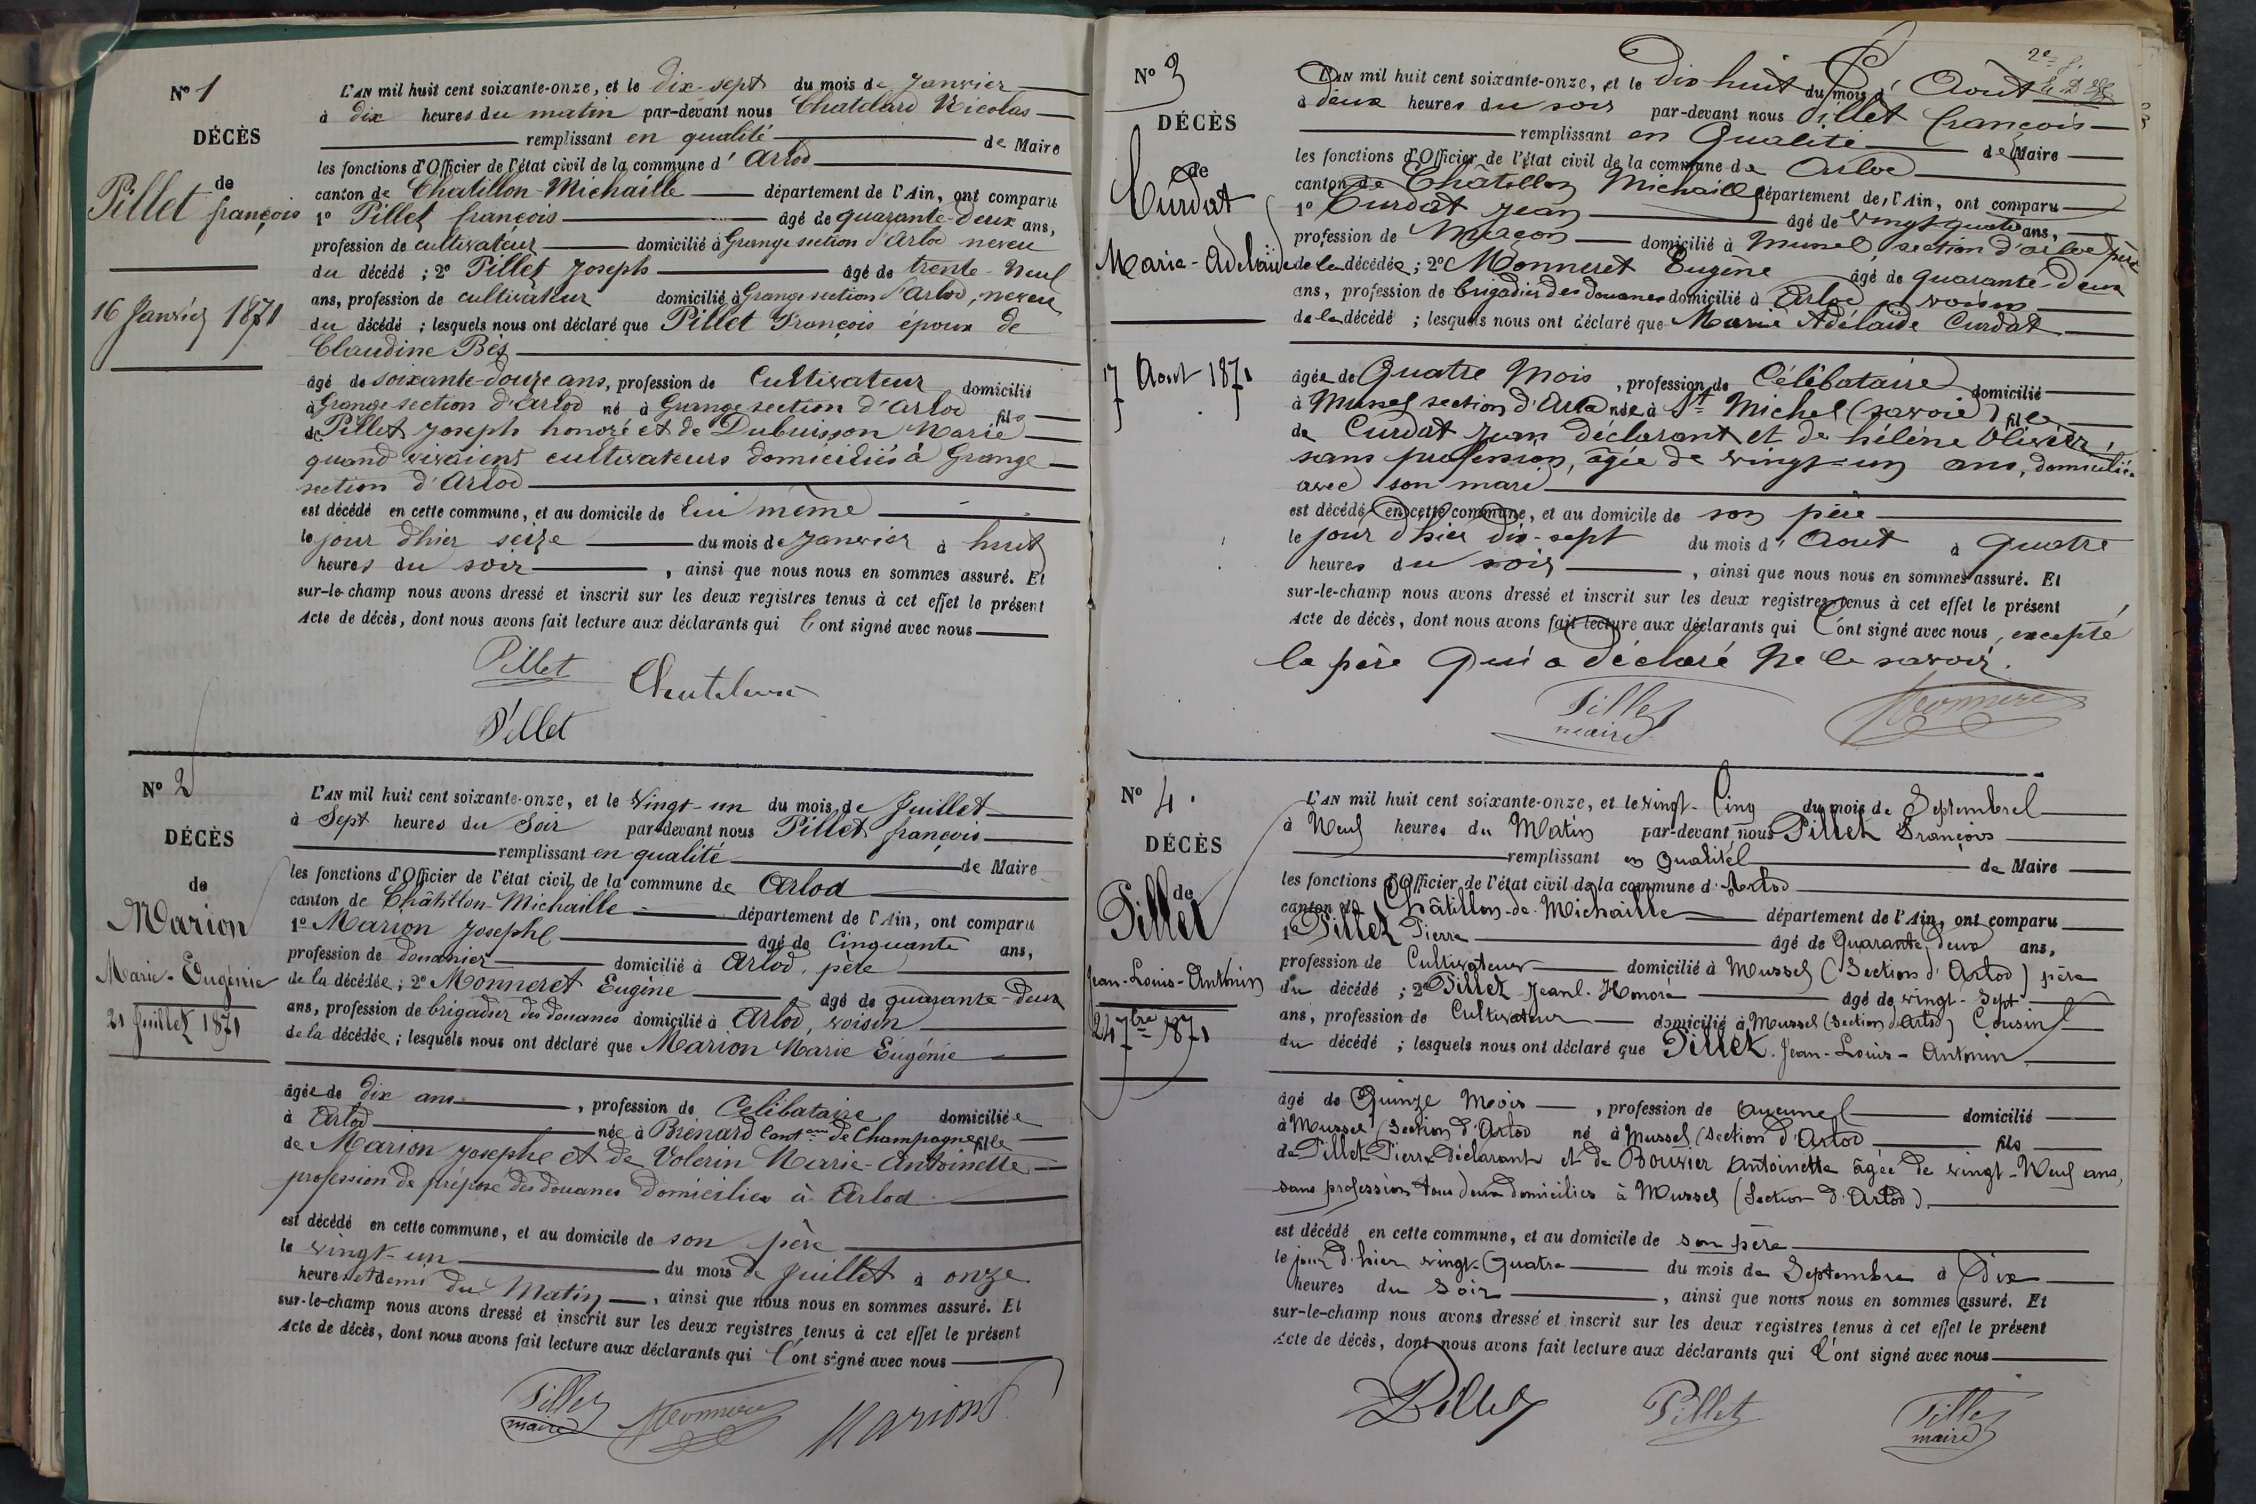 N° 1
DÉCÈS
de
Pillet françois
16 Janvier 1871
L'AN mil huit cent soixante-onze, et le dix-sept du mois de Janvier
à dix heures du matin par-devant nous Chatelard Nicolas
remplissant en qualité de Maire
les fonctions d'Officier de l'état civil de la commune d'Arlod
canton de Chatillon-Michaille département de l'Ain, ont comparu
1° Pillet françois âgé de quarante-deux ans,
profession de cultivateur domicilié à Grange section d'Arlod neveu
du décédé ; 2° Pillet Joseph âgé de trente-neuf
ans, profession de cultivateur domicilié à Grange section d'Arlod, neveu
du décédé ; lesquels nous ont déclaré que Pillet François époux de
Claudine Bès
âgé de soixante-douze ans, profession de Cultivateur domicilié
à Grange section d'Arlod né à Grange section d'Arlod fils
de Pillet Joseph honoré et de Dubuisson Marie
quand vivaient cultivateurs domiciliés à Grange
section d'Arlod
est décédé en cette commune, et au domicile de lui même
le jour d'hier seize du mois de Janvier à huit
heures du soir, ainsi que nous nous en sommes assuré. Et
sur-le-champ nous avons dressé et inscrit sur les deux registres tenus à cet effet le présent
Acte de décès, dont nous avons fait lecture aux déclarants qui l'ont signé avec nous
Pillet
Chatelard
Pillet
N° 2
DÉCÈS
de
Marion
Marie-Eugénie
21 Juillet 1871
L'AN mil huit cent soixante-onze, et le vingt-un du mois de Juillet
à Sept heures du Soir par-devant nous Pillet françois
remplissant en qualité de Maire
les fonctions d'Officier de l'état civil de la commune de Arlod
canton de Châtillon-Michaille département de l'Ain, ont comparu
1° Marion Josephe âgé de Cinquante ans,
profession de douanier domicilié à Arlod, père
de la décédée ; 2° Monneret Eugène âgé de quarante-deux
ans, profession de brigadier des douanes domicilié à Arlod, voisin
de la décédée ; lesquels nous ont déclaré que Marion Marie Eugénie
âgée de dix ans, profession de Célibataire domiciliée
à Arlod née à Brénard Canton de Champagne fille
de Marion Josephe et de Volerin Marie-Antoinette
profession de préposé des douanes domiciliés à Arlod
est décédé en cette commune, et au domicile de son père
le vingt-un du mois de Juillet à onze
heures et demi du Matin, ainsi que nous nous en sommes assuré. Et
sur-le-champ nous avons dressé et inscrit sur les deux registres tenus à cet effet le présent
Acte de décès, dont nous avons fait lecture aux déclarants qui l'ont signé avec nous
Pillet maire
Monneret
Marion
N° 3
DÉCÈS
de
Curdat
Marie-Adelaïde
17 Aout 1871
L'AN mil huit cent soixante-onze, et le Dix huit du mois d'Aout
à deux heures du soir par-devant nous Pillet françois
remplissant en Qualité de Maire
les fonctions d'Officier de l'état civil de la commune de Arlod
canton de Châtillon Michaille département de l'Ain, ont comparu
1° Curdat Jean âgé de Vingt quatre ans,
profession de Maçon domicilié à Mussel section d'arlod père
de la décédée ; 2° Monneret Eugène âgé de quarante-deux
ans, profession de brigadier des douanes domicilié à Arlod voisin
de la décédé ; lesquels nous ont déclaré que Marie Adélaïde Curdat
âgée de Quatre Mois, profession de Célibataire domicilié
à Mussel section d'Arlod née à St Michel (savoie) fille
de Curdat Jean déclarant et de hélène Olivier,
sans profession, âgée de vingt-un ans, domiciliée
avec son mari
est décédé en cette commune, et au domicile de son père
le jour d'hier dix-sept du mois d'Aout à Quatre
heures du soir, ainsi que nous nous en sommes assuré. Et
sur-le-champ nous avons dressé et inscrit sur les deux registres tenus à cet effet le présent
Acte de décès, dont nous avons fait lecture aux déclarants qui l'ont signé avec nous, excepté
le père Qui a déclaré Ne le savoir.
Pillet maire
Monneret
N° 4.
DÉCÈS
de
Pillet
Jean-Louis-Antonin
24 7bre 1871
L'AN mil huit cent soixante-onze, et le vingt-Cinq du mois de Septembre
à Neuf heures du Matin par-devant nous Pillet François
remplissant en Qualité de Maire
les fonctions d'Officier de l'état civil de la commune d'Arlod
canton de Châtillon-de-Michaille département de l'Ain, ont comparu
1° Pillet Pierre âgé de Quarante deux ans,
profession de Cultivateur domicilié à Mussel (Section d'Arlod) père
du décédé ; 2° Pillet Jean-Honoré âgé de vingt-Sept
ans, profession de Cultivateur domicilié à Mussel (Section d'Arlod) Cousin
du décédé ; lesquels nous ont déclaré que Pillet Jean-Louis-Antonin
âgé de Quinze Mois, profession de aucune domicilié
à Mussel (Section d'Arlod né à Mussel (Section d'Arlod fils
de Pillet Pierre Déclarant et de Bouvier Antoinette âgée de vingt-Neuf ans,
sans profession tous deux domiciliés à Mussel (Section d'Arlod).
est décédé en cette commune, et au domicile de son père
le jour d'hier vingt-Quatre du mois de Septembre à Dix
heures du Soir, ainsi que nous nous en sommes assuré. Et
sur-le-champ nous avons dressé et inscrit sur les deux registres tenus à cet effet le présent
Acte de décès, dont nous avons fait lecture aux déclarants qui l'ont signé avec nous
Pillet
Pillet
Pillet maire